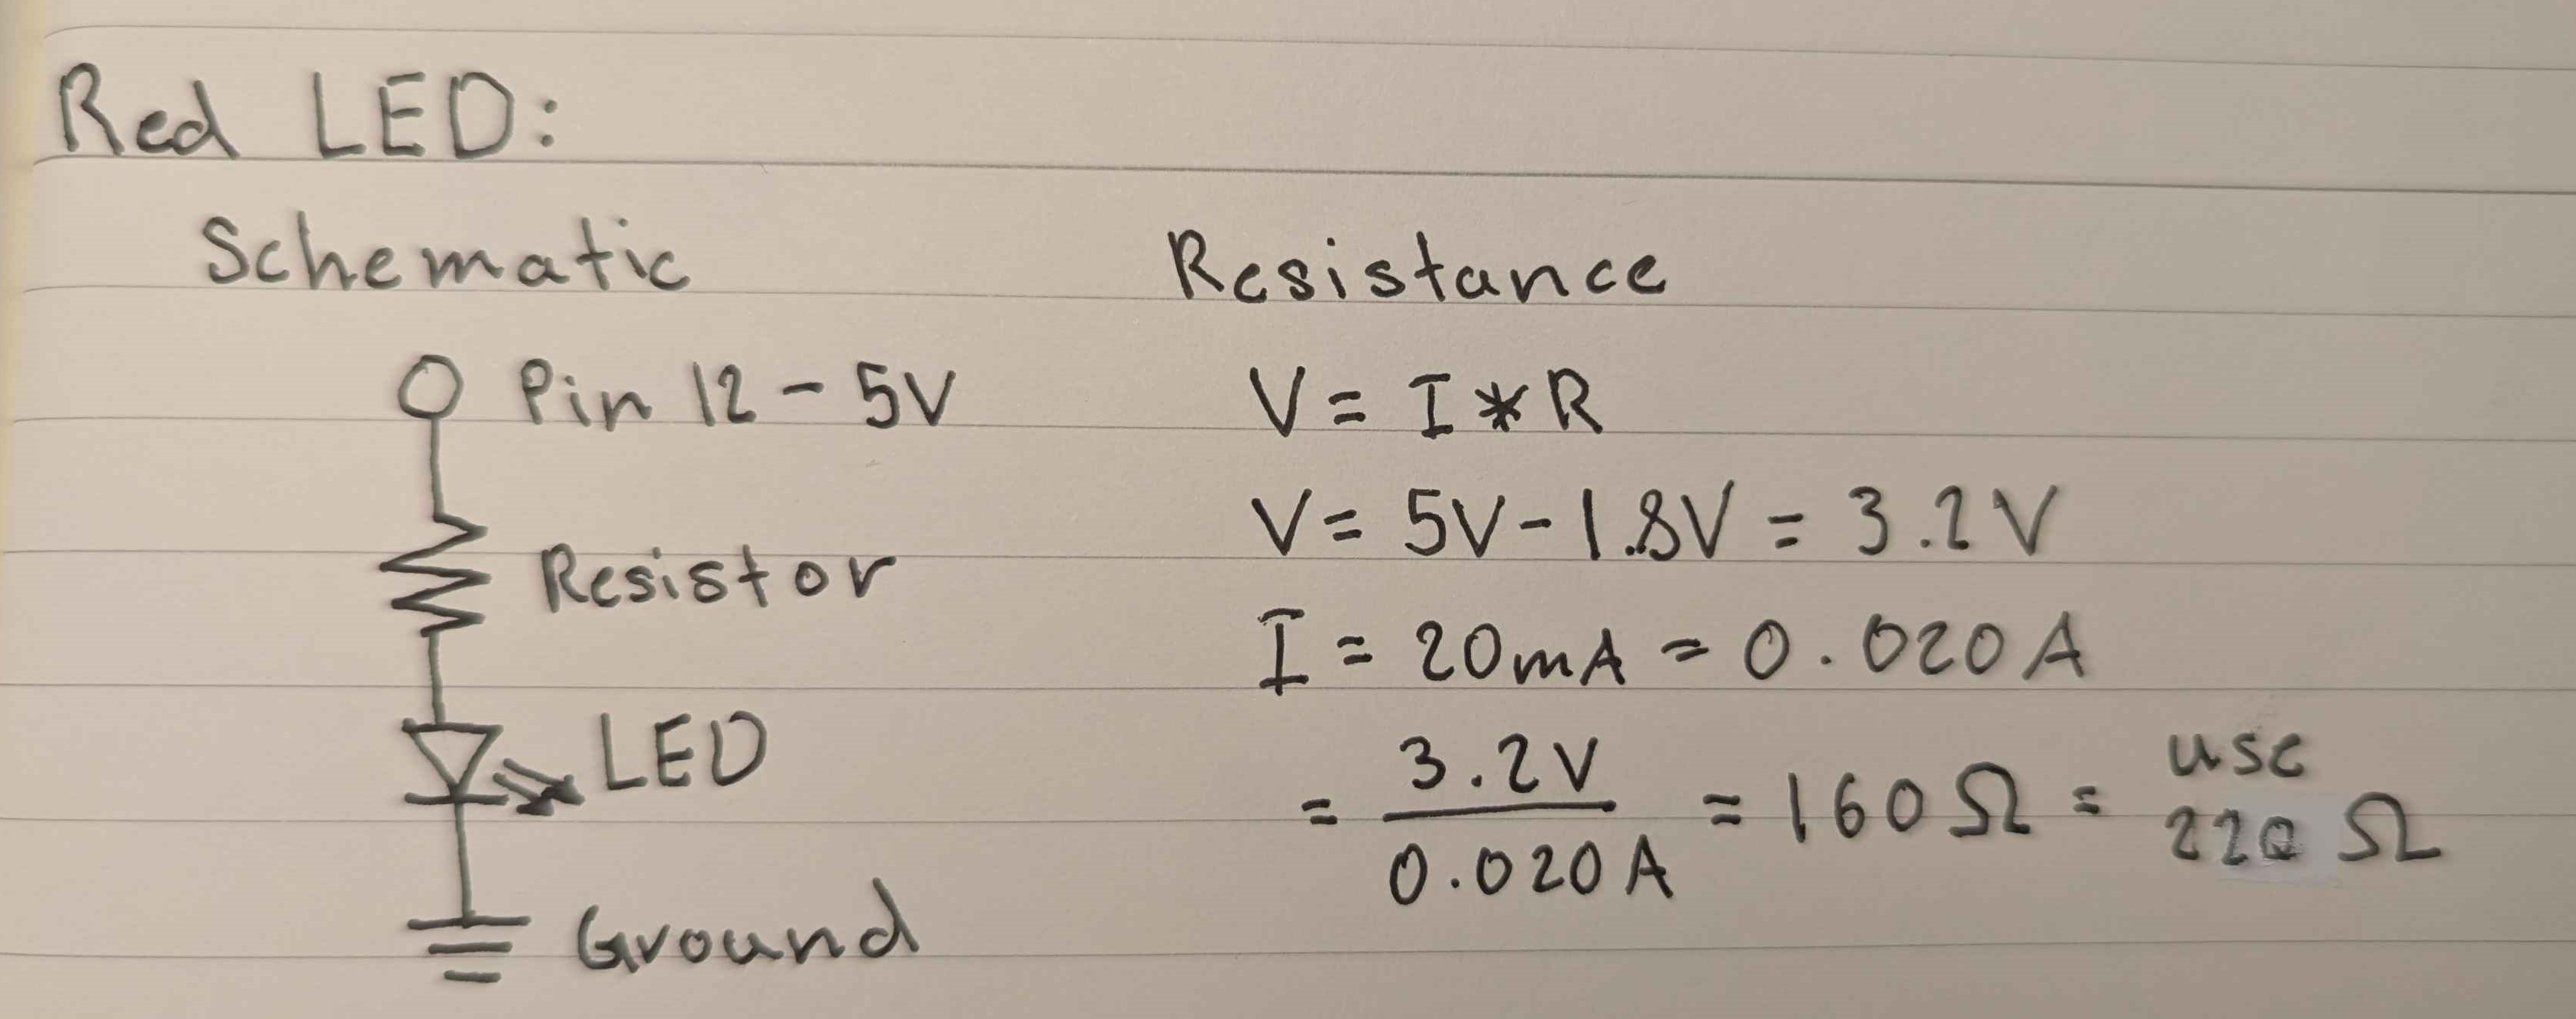 Red LED:
Schematic
Pin 12 - 5V
Resistor
LED
Ground
Resistance
V = I * R
V = 5V - 1.8V = 3.2V
I = 20mA = 0.020A
= 3.2V / 0.020A = 160Ω = use 220Ω